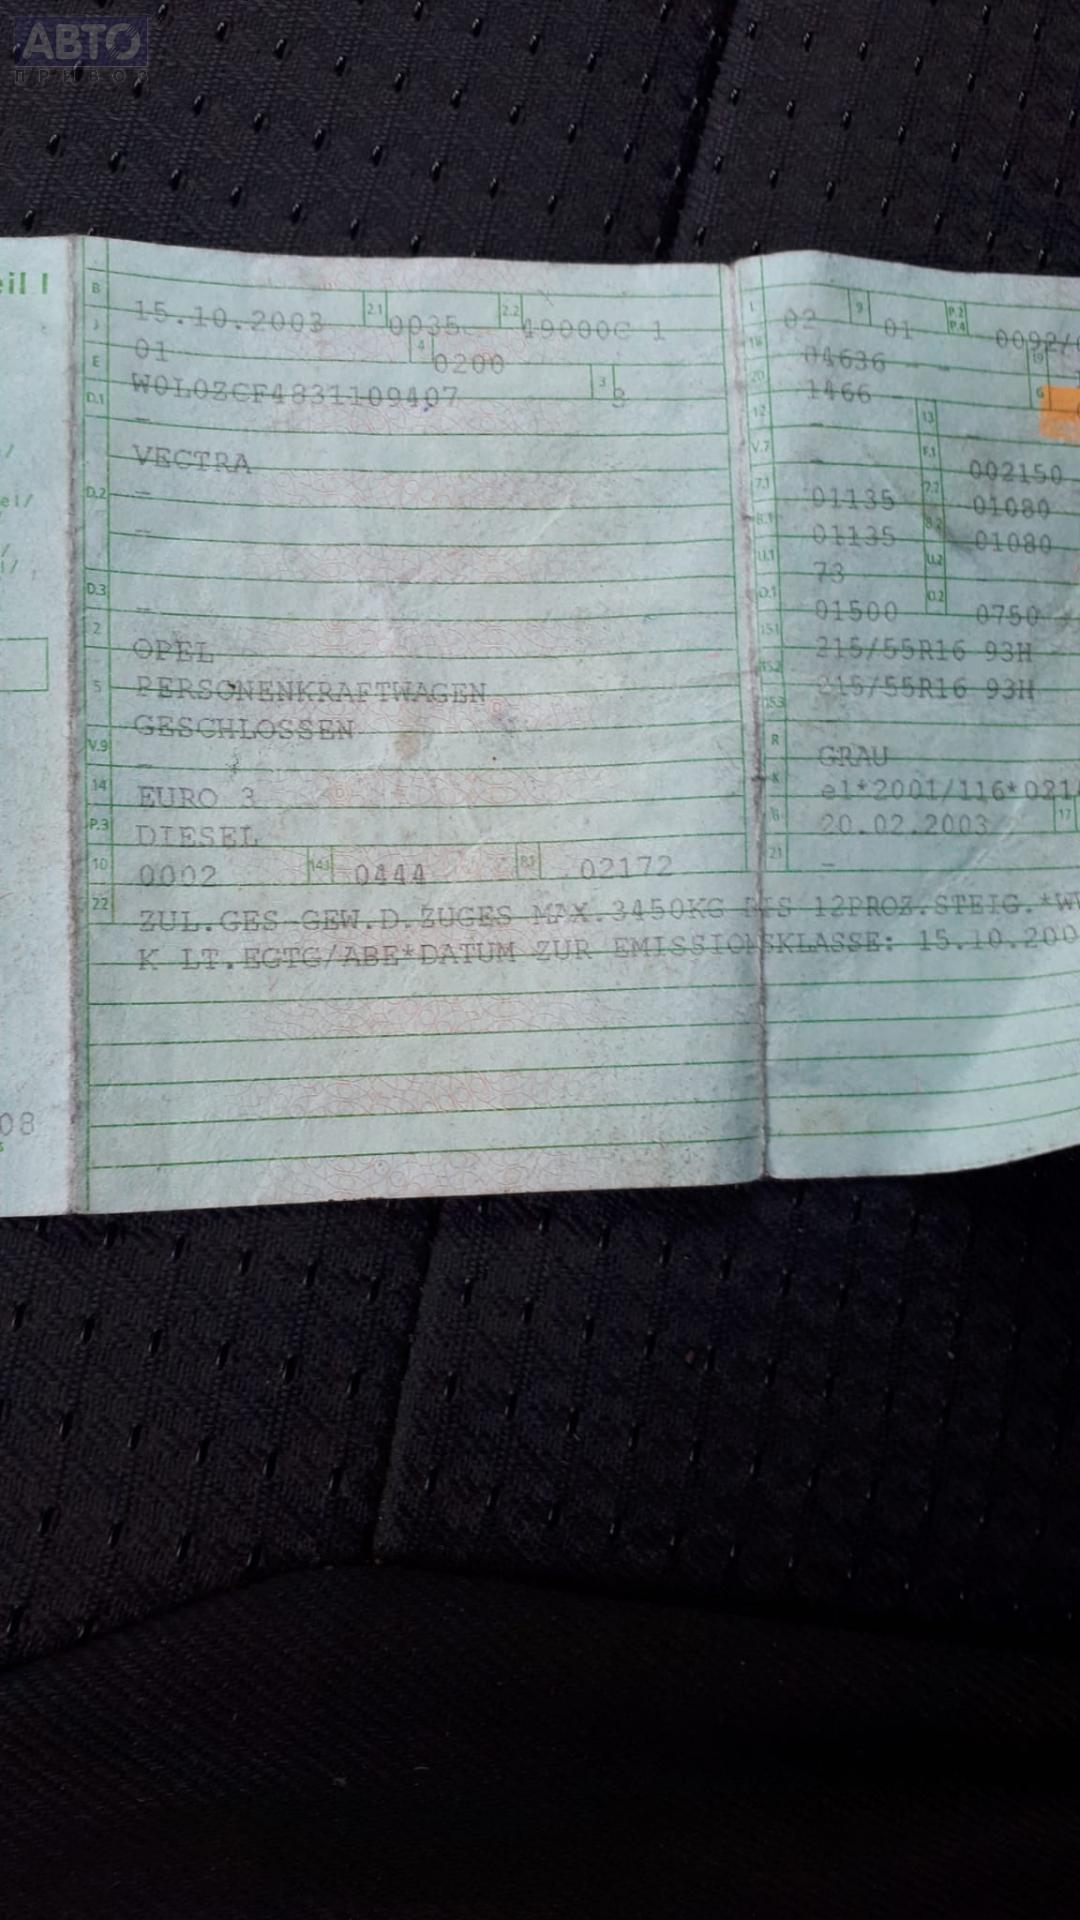 АВТО
ПРИВОЗ
eil I
B 15.10.2003 2.1 0035 2.2 49000C 1
J 01 4 0200
E W0L0ZCF4831109407 3 8
D.1 -
VECTRA
D.2 -
-
D.3 -
2 OPEL
5 PERSONENKRAFTWAGEN
GESCHLOSSEN
V.9 -
14 EURO 3
P.3 DIESEL
10 0002 14.1 0444 P.1 02172
22 ZUL.GES GEW.D.ZUGES MAX.3450KG BIS 12PROZ.STEIG.*W
K LT.EGTG/ABE*DATUM ZUR EMISSIONSKLASSE: 15.10.200
L 02 9 01 P.2 P.4 0092/
18 04636 - - 19
20 1466 - G
12 - 13 -
V.7 - F.1 002150
7.1 01135 7.2 01080
8.1 01135 8.2 01080
U.1 73 U.2
O.1 01500 O.2 0750
15.1 215/55R16 93H
15.2 215/55R16 93H
15.3
R GRAU
K e1*2001/116*021
6 20.02.2003 17
21 -
ei/
08